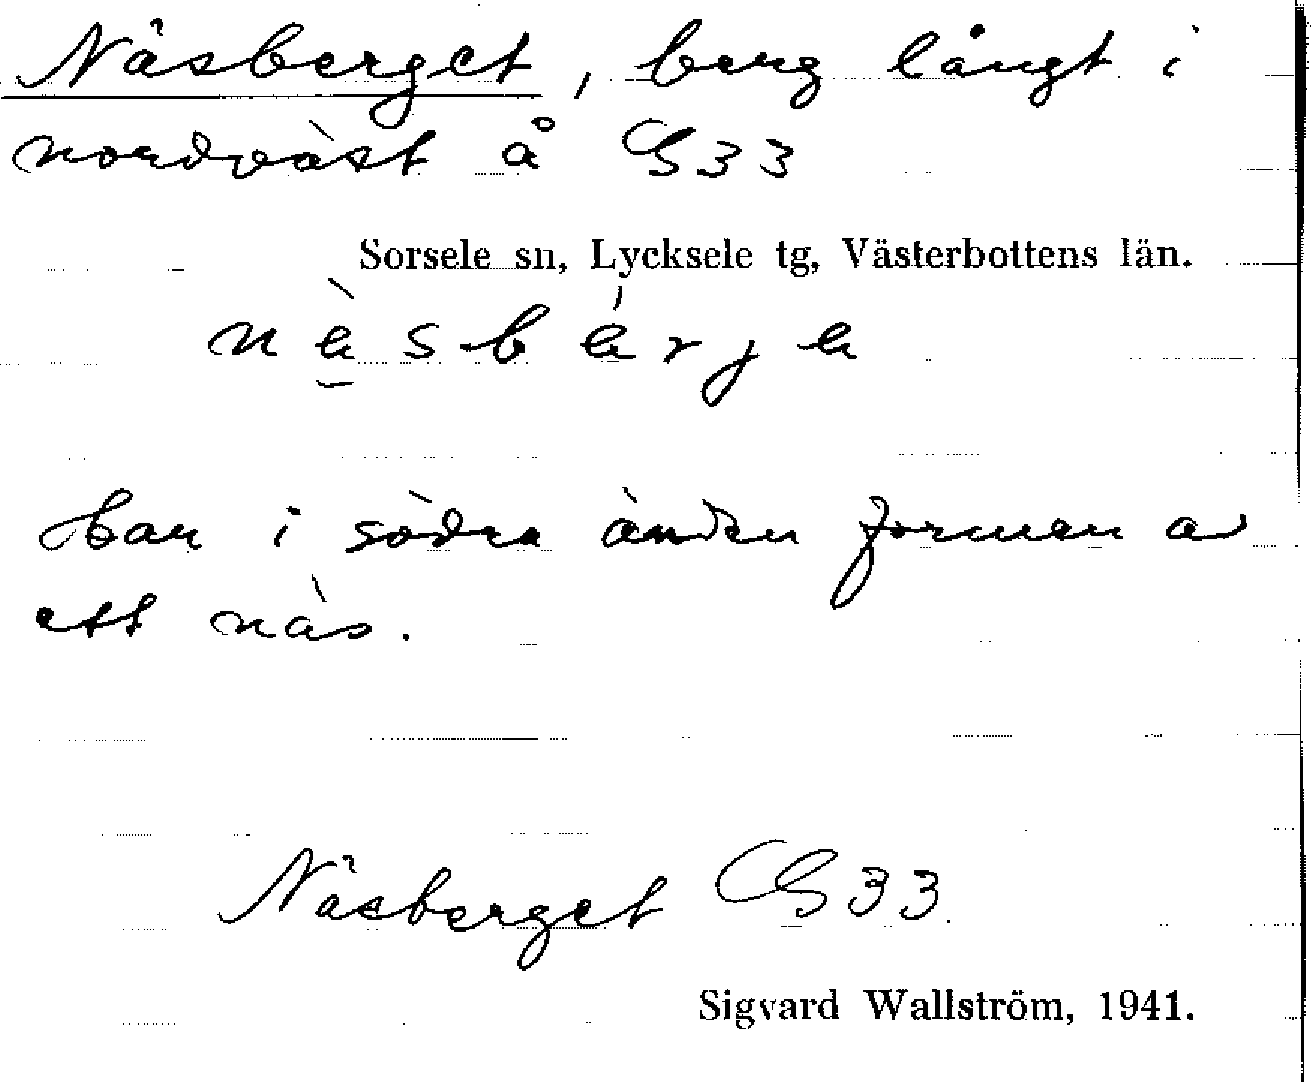 Näsberget, berg långt i
nordväst å G33
Sorsele sn, Lycksele tg, Västerbottens län.
Har i södra änden formen av
ett näs.
Näsberget G33
Sigvard Wallström, 1941.